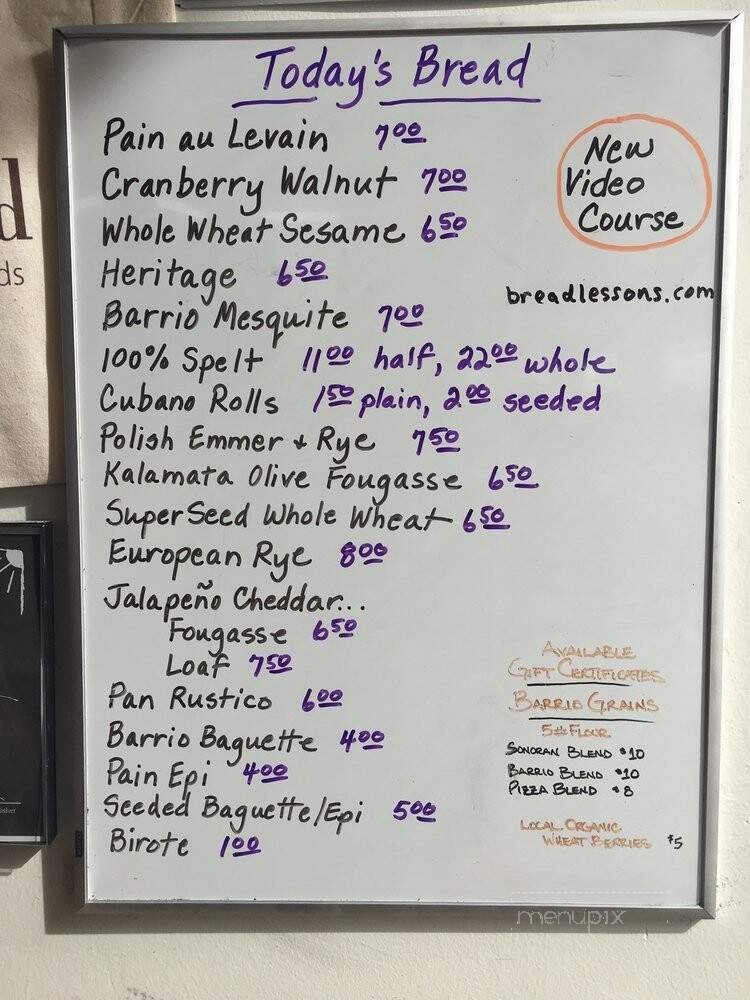 Today's Bread
Pain au Levain 7.00
Cranberry Walnut 7.00
Whole Wheat Sesame 6.50
Heritage 6.50
Barrio Mesquite 7.00
100% Spelt 11.00 half, 22.00 whole
Cubano Rolls 1.50 plain, 2.00 seeded
Polish Emmer + Rye 7.50
Kalamata Olive Fougasse 6.50
SuperSeed Whole Wheat 6.50
European Rye 8.00
Jalapeño Cheddar...
Fougasse 6.50
Loaf 7.50
Pan Rustico 6.00
Barrio Baguette 4.00
Pain Epi 4.00
Seeded Baguette/Epi 5.00
Birote 1.00
New
Video
Course
breadlessons.com
AVAILABLE
GIFT CERTIFICATES
BARRIO GRAINS
5# FLOUR
SONORAN BLEND $10
BARRIO BLEND $10
PIZZA BLEND $8
LOCAL ORGANIC
WHEAT BERRIES $5
d
ds
menupix